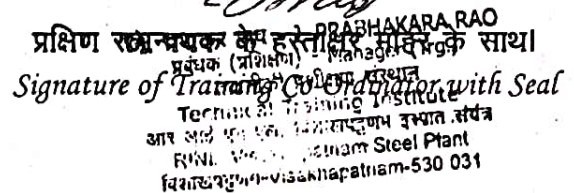 PRABHAKARA RAO
प्रक्षिण समन्वयकर के हस्ताक्षर मोहर के साथ।
प्रबंधक (प्रशिक्षण) - Manager (Trg)
Signature of Training Co-Ordinator with Seal
Technical Training Institute
आर आई एन एल, विशाखपट्टणम इस्पात संयंत्र
RINL Steel Plant
विशाखपट्टणम-Visakhapatnam-530 031